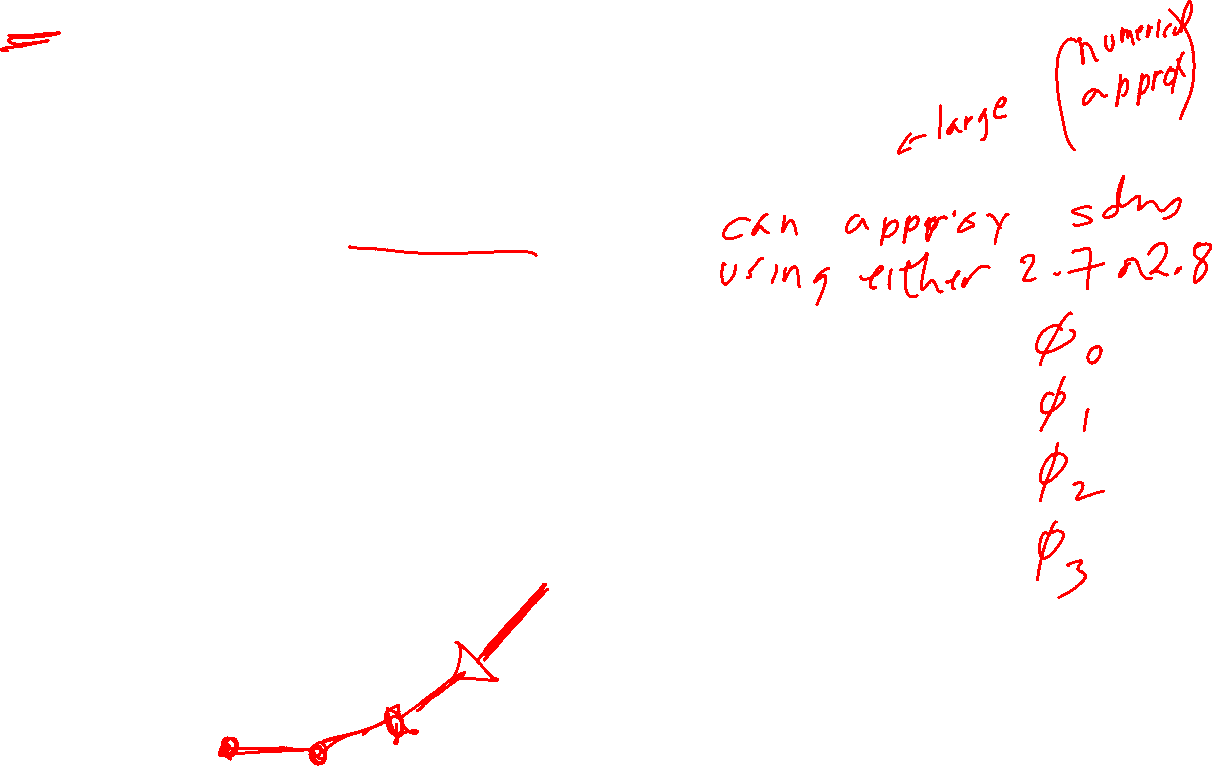 (numerical
approx)
← large
can approx solns
using either 2.7 or 2.8
ϕ0
ϕ1
ϕ2
ϕ3